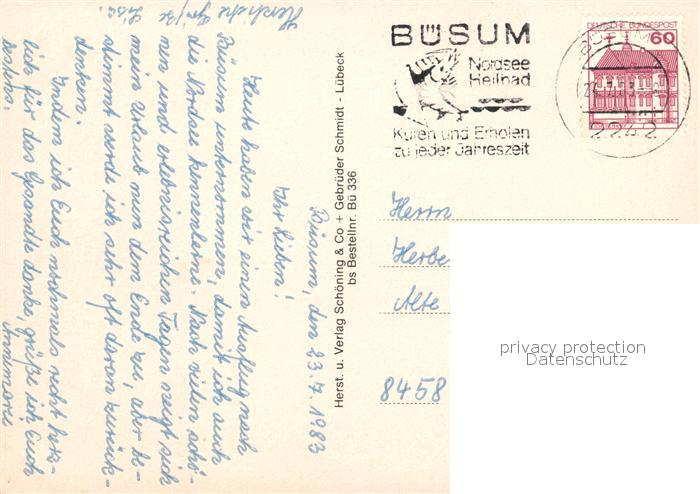 Büsum, den 23.7.1983
Ihr Lieben!
Heute haben wir einen Ausflug nach
Büsum unternommen, damit ich auch
die Nordsee kennenlerne. Nach vielen schö-
nen und erlebnisreichen Tagen neigt sich
mein Urlaub nun dem Ende zu, aber be-
stimmt werde ich sehr oft daran zurück-
denken.
Indem ich Euch nochmals recht herz-
lich für das Gesandte danke, grüße ich Euch
Annemarie
Herzliche Grüße
Lisa.
Herst. u. Verlag Schöning & Co + Gebrüder Schmidt - Lübeck
bs Bestellnr. Bü 336
BÜSUM
Nordsee
Heilbad
Kuren und Erholen
zu jeder Jahreszeit
DEUTSCHE BUNDESPOST
60
2242
Herrn
Herbe
Alte
8458
privacy protection
Datenschutz